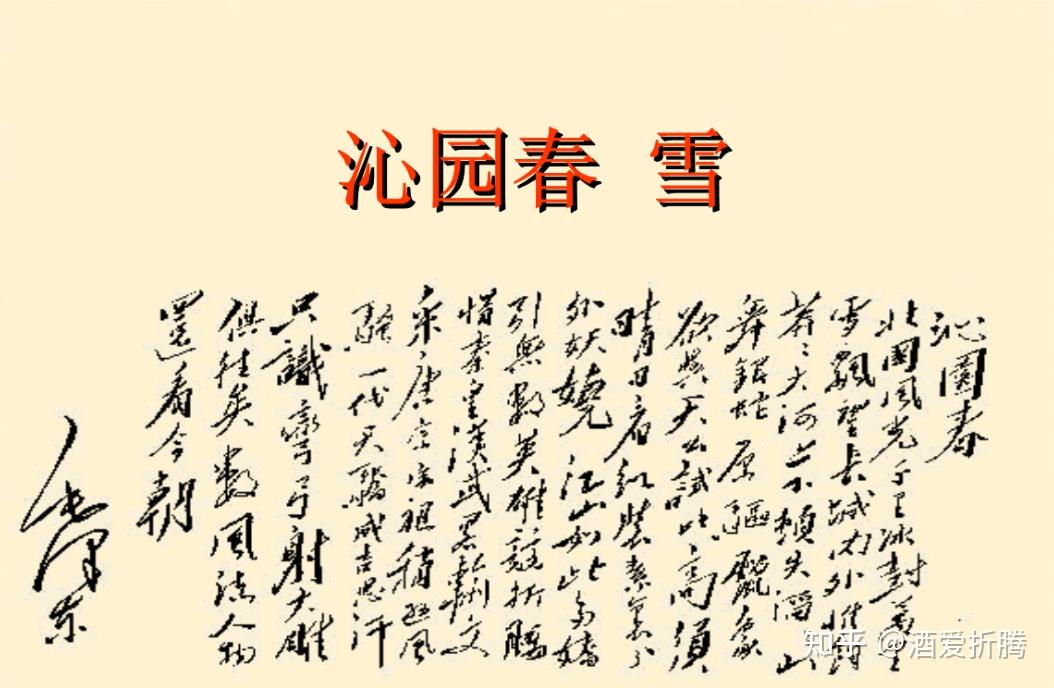 沁园春 雪
沁園春
北國風光千里冰封萬里
雪飄望長城内外惟餘
莽〻大河上下頓失滔〻山
舞銀蛇原驅臘象
欲與天公試比高須
晴日看紅裝素裹分
外妖嬈江山如此多嬌
引無數英雄競折腰
惜秦皇漢武略輸文
采唐宗宋祖稍遜風
騷一代天驕成吉思汗
只識彎弓射大雕
俱往矣數風流人物
還看今朝
毛澤東
知乎 @酒爱折腾